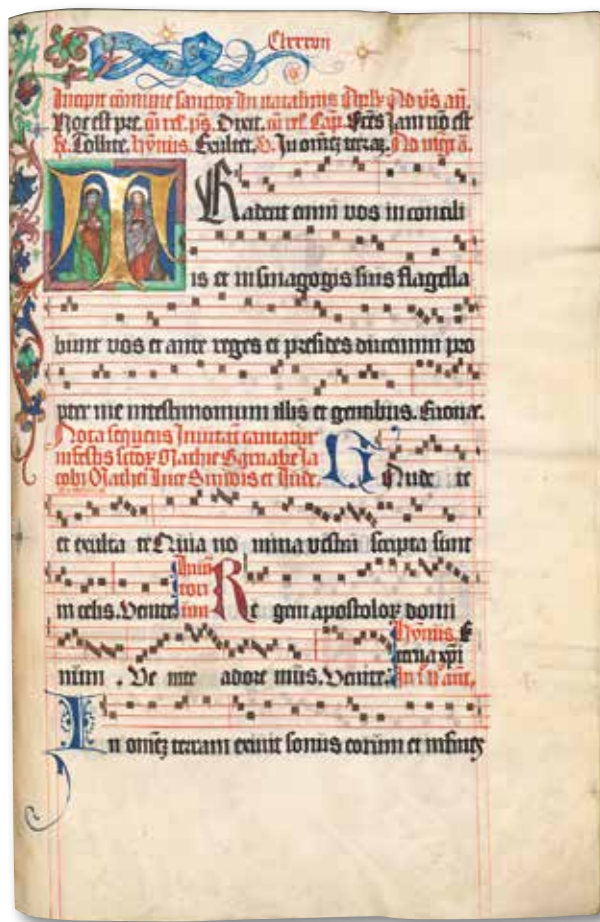 Clxxxvii
Incipit cōmune sanctoꝝ In natalibus Apłoꝝ Ad vs̄ an̄.
Hoc est pre. cū rel. ps. Dixit. cū rel. Cap. Frēs Jam nō est
R̷. Tollite. hȳnus. Exultet. V. In omnē terrā. Ad mgt̄ a.
Tradent enim vos in concili
is et in sinagogis suis flagella
bunt vos et ante reges et presides ducemini pro
pter me in testimonium illis et gentibus. Euouae.
Nota sequens Inuitat̄ cantatur
in festis sctōꝝ Mathie Barnabe Ja
cobi Mathei Luce Simōis et Jude.
Gaude te
et exulta te Quia no mina vestra scripta sunt
in celis. Venite.
Inui
tori
um
Re gem apostoloꝝ domi
num. Ve nite adore mus. Venite.
Hȳnus. E
terna xp̄i
In i n̄ ant̄.
In omnē terram exiuit sonus eorum et in fines